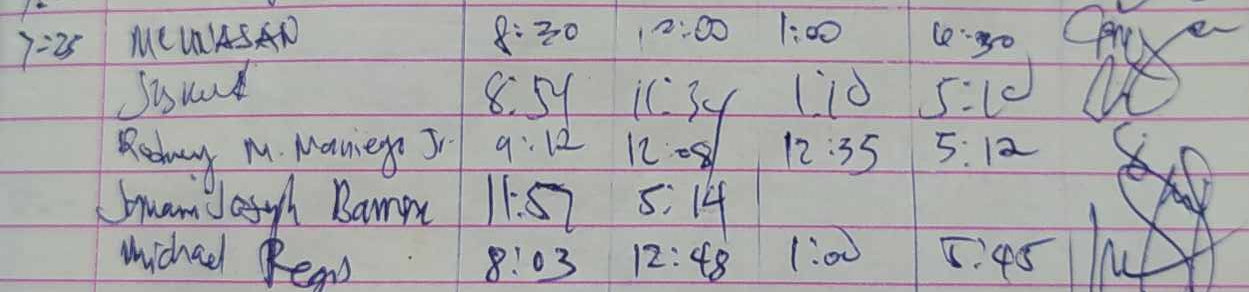 7-25 MCUVASAN 8:30 12:00 1:00 6:30
8:54 11:34 1:10 5:10
Rodney M. Maniego Jr. 9:12 12:08 12:35 5:12
Joseph 11:57 5:14
Michael Regis 8:03 12:48 1:00 5:45